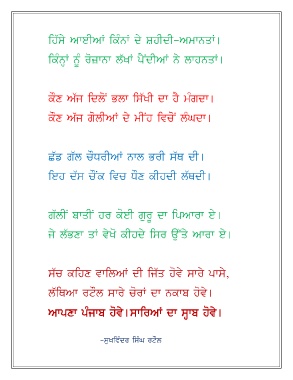 ਹਿੱਸੇ ਆਈਆਂ ਕਿੰਨਾਂ ਦੇ ਸ਼ਹੀਦੀ-ਅਮਾਨਤਾਂ।
ਕਿੰਨ੍ਹਾਂ ਨੂੰ ਰੋਜ਼ਾਨਾ ਲੱਖਾਂ ਪੈਂਦੀਆਂ ਨੇ ਲਾਹਨਤਾਂ।
ਕੌਣ ਅੱਜ ਦਿਲੋਂ ਭਲਾ ਸਿੱਖੀ ਦਾ ਹੈ ਮੰਗਦਾ।
ਕੌਣ ਅੱਜ ਗੋਲੀਆਂ ਦੇ ਮੀਂਹ ਵਿਚੋਂ ਲੰਘਦਾ।
ਛੱਡ ਗੱਲ ਚੌਧਰੀਆਂ ਨਾਲ ਭਰੀ ਸੱਥ ਦੀ।
ਇਹ ਦੱਸ ਚੌਂਕ ਵਿਚ ਧੌਣ ਕੀਹਦੀ ਲੱਥਦੀ।
ਗੱਲੀਂ ਬਾਤੀਂ ਹਰ ਕੋਈ ਗੁਰੂ ਦਾ ਪਿਆਰਾ ਏ।
ਜੇ ਲੱਭਣਾ ਤਾਂ ਵੇਖੋ ਕੀਹਦੇ ਸਿਰ ਉੱਤੇ ਆਰਾ ਏ।
ਸੱਚ ਕਹਿਣ ਵਾਲਿਆਂ ਦੀ ਜਿੱਤ ਹੋਵੇ ਸਾਰੇ ਪਾਸੇ,
ਲੱਥਿਆ ਰਟੌਲ ਸਾਰੇ ਚੋਰਾਂ ਦਾ ਨਕਾਬ ਹੋਵੇ।
ਆਪਣਾ ਪੰਜਾਬ ਹੋਵੇ।ਸਾਰਿਆਂ ਦਾ ਸ੍ਹਾਬ ਹੋਵੇ।
-ਸੁਖਵਿੰਦਰ ਸਿੰਘ ਰਟੌਲ